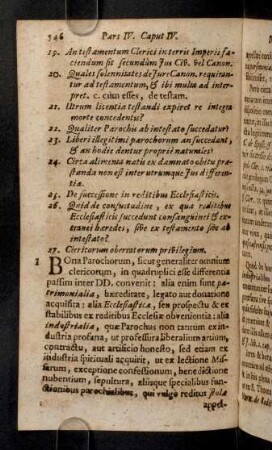 546 Pars IV. Caput IV.
19. An testamentum Clerici in terris Imperii fa-
ciendum sit secundùm Jus Cib. vel Canon.
20. Quales solennitates de Jure Canon. requiran-
tur ad testamentum, & ibi multa ad inter-
pret. c. cùm esses, de testam.
21. Utrum licentia testandi expiret re integra
morte concedentis?
22. Qualiter Parochis ab intestato succedatur?
23. Liberi illegitimi parochorum an succedant,
& an hodie dentur propriè naturales?
24. Circa alimenta natis ex damnato coitu præ-
standa non est inter utrumque Jus differen-
tia.
25. De successione in reditibus Ecclesiasticis.
26. Quid de consuetudine, ex qua reditibus
Ecclesiasticis succedunt consanguinei & ex-
tranei hæredes, sive ex testamento sive ab
intestato?
27. Clericorum obæratorum privilegium.
1 BOna Parochorum, sicut generaliter omnium
clericorum, in quadruplici esse differentia
passim inter DD. convenit: alia enim sunt pa-
trimonialia, hæreditate, legato aut donatione
acquisita: alia Ecclesiastica, seu prospectu & ex
stabilibus ex reditibus Ecclesiæ obvenientia: alia
industrialia, quæ Parochus non tantum ex in-
dustria profana, ut professura liberalium artium
contractu, aut artificio honesto, sed etiam ex
industria spirituali acquirit, ut ex lectione Mis-
sarum, exceptione confessionum, benedictione
nubentium, sepultura, aliisque specialibus fun-
ctionibus parochialibus, qui vulgò reditus stolæ
appel-